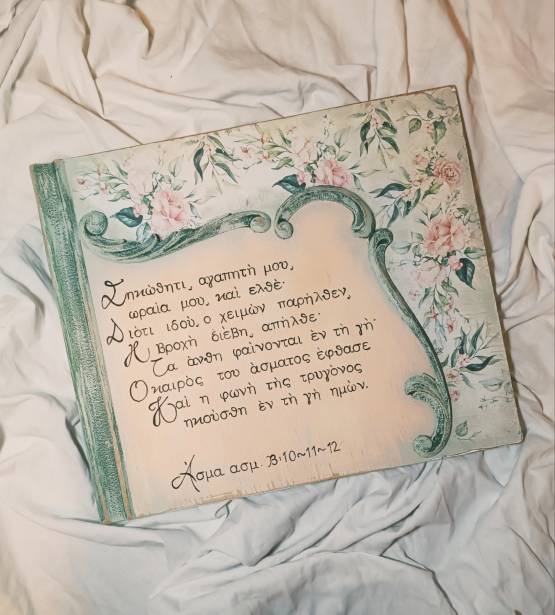 Σηκώθητι, αγαπητὴ μου,
ωραία μου, καὶ ελθὲ·
Διότι ιδοὺ, ο χειμὼν παρῆλθεν,
Η βροχὴ διέβη, απῆλθε·
Τα άνθη φαίνονται ἐν τὴ γῇ·
Ο καιρὸς του ἀσματος ἐφθασε
Καὶ η φωνὴ τῆς τρυγόνος
ηκούσθη ἐν τῇ γῇ ημῶν.
Άσμα ασμ. Β:10~11~12